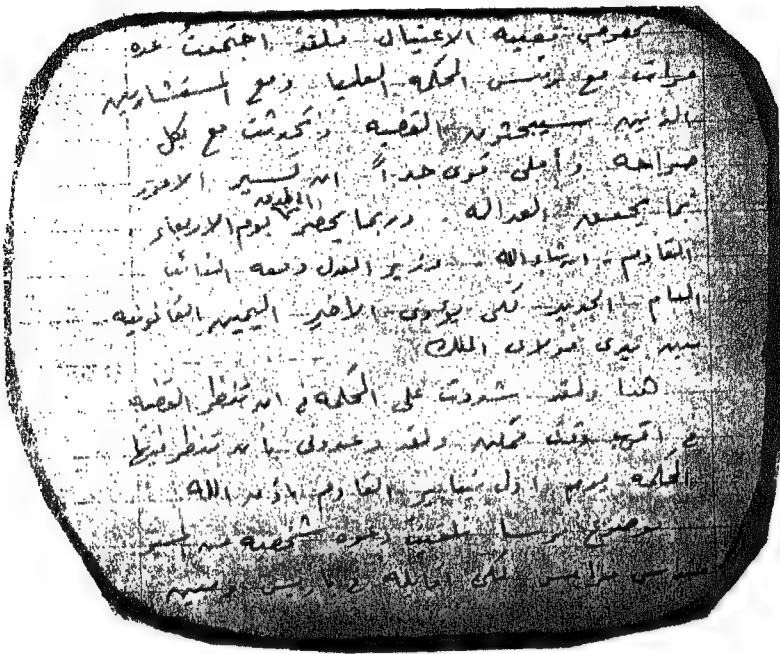 بخصوص قضية الاغتيال فلقد اجتمعت عدة
مرات مع رئيس المحكمة العليا ومع المستشارين
الذين سيبحثون القضية وتحدثت مع بكل
صراحة وأملي قوي جداً ان تسير الامور
بما يحقق العدالة وربما يحضر الخرطوم يوم الاربعاء
القادم انشاء الله وزير العدل ومعه النائب
العام الجديد لكي يؤدي الأخير اليمين القانونية
بين يدي مولاي الملك
هذا ولقد شددت على المحكمة في ان تنظر القضية
في اقرب وقت ممكن ولقد وعدوني بأن تنظر فيها
المحكمة يوم اول يناير القادم باذن الله
وصلتني دعوة شخصية من المسيو
لكي اقابله في باريس